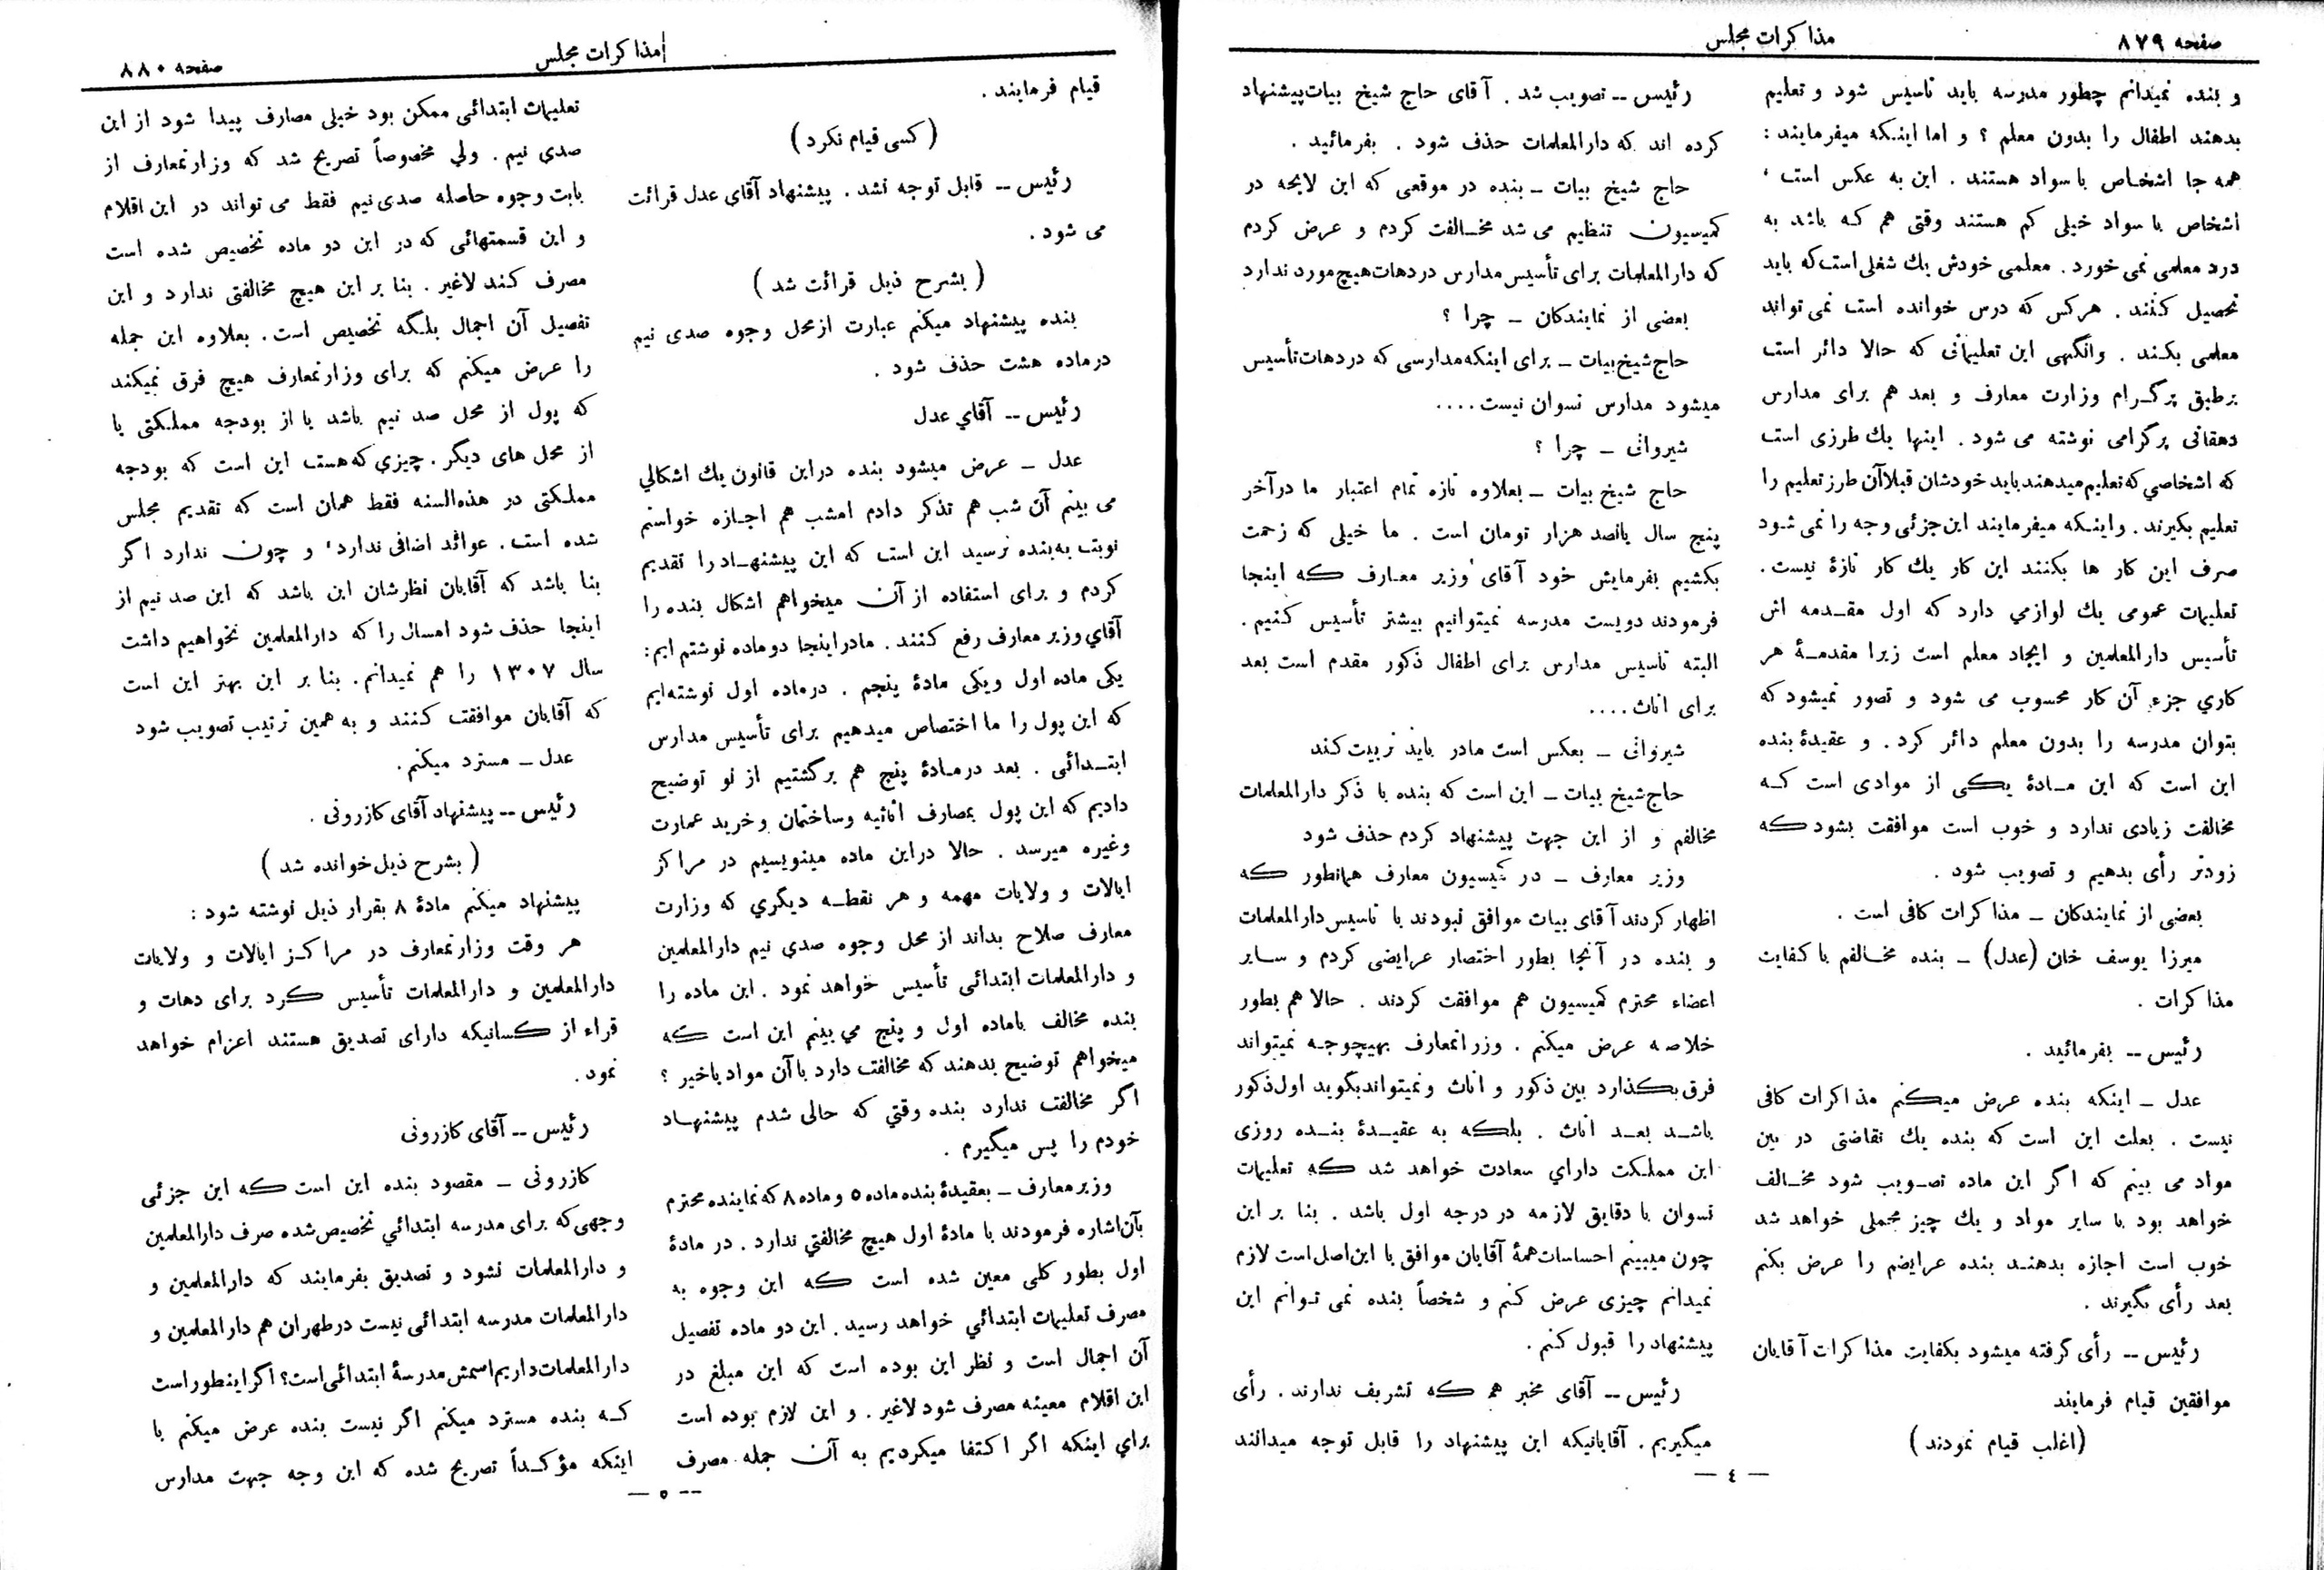 صفحه ۸۷۹
مذاکرات مجلس
و بنده نمیدانم چطور مدرسه باید تاسیس شود و تعلیم
بدهند اطفال را بدون معلم ؟ و اما اینکه میفرمایند :
همه جا اشخاص با سواد هستند . این به عکس است ،
اشخاص با سواد خیلی کم هستند وقتی هم که باشد به
درد معلمی نمی خورد . معلمی خودش یك شغلی است که باید
تحصیل کنند . هرکس که درس خوانده است نمی تواند
معلمی بکند . وانگهی این تعلیماتی که حالا دائر است
برطبق پرگرام وزارت معارف و بعد هم برای مدارس
دهقانی پرگرامی نوشته می شود . اینها یك طرزی است
که اشخاصي که تعلیم میدهند باید خودشان قبلا آن طرز تعلیم را
تعلیم بگیرند . واینکه میفرمایند این جزئی وجه را نمی شود
صرف این کار ها بکنند این کار یك کار تازۀ نیست .
تعلیمات عمومی یك لوازمي دارد که اول مقدمه اش
تأسیس دارالمعلمین و ایجاد معلم است زیرا مقدمۀ هر
کاري جزء آن کار محسوب می شود و تصور نمیشود که
بتوان مدرسه را بدون معلم دائر کرد . و عقیدۀ بنده
این است که این مادۀ یکی از موادی است که
مخالفت زیادی ندارد و خوب است موافقت بشود که
زودتر رأی بدهیم و تصویب شود .
بعضی از نمایندکان ــ مذاکرات کافی است .
میرزا یوسف خان (عدل) ــ بنده مخالفم با کفایت
مذاکرات .
رئیس ــ بفرمائید .
عدل ــ اینکه بنده عرض میکنم مذاکرات کافی
نیست . بعلت این است که بنده یك نقاضتی در بین
مواد می بینم که اگر این ماده تصویب شود مخالف
خواهد بود با سایر مواد و یك چیز مجملی خواهد شد
خوب است اجازه بدهند بنده عرایضم را عرض بکنم
بعد رأی بگیرند .
رئیس ــ رأی گرفته میشود بکفایت مذاکرات آقایان
موافقین قیام فرمایند
(اغلب قیام نمودند)
رئیس ــ تصویب شد . آقای حاج شیخ بیات پیشنهاد
کرده اند که دارالمعلمات حذف شود . بفرمائید .
حاج شیخ بیات ــ بنده در موقعی که این لایحه در
کمیسیون تنظیم می شد مخالفت کردم و عرض کردم
که دارالمعلمات برای تأسیس مدارس در دهات هیچ مورد ندارد
بعضی از نمایندکان ــ چرا ؟
حاج شیخ بیات ــ برای اینکه مدارسی که در دهات تأسیس
میشود مدارس نسوان نیست ....
شیروانی ــ چرا ؟
حاج شیخ بیات ــ بعلاوه تازه تمام اعتبار ما در آخر
پنج سال پانصد هزار تومان است . ما خیلی که زحمت
بکشیم بفرمایش خود آقای وزیر معارف که اینجا
فرمودند دویست مدرسه نمیتوانیم بیشتر تأسیس کنیم .
البته تاسیس مدارس برای اطفال ذکور مقدم است بعد
برای اناث ....
شیروانی ــ بعکس است مادر باید تربیت کند
حاج شیخ بیات ــ این است که بنده با ذکر دارالمعلمات
مخالفم و از این جهت پیشنهاد کردم حذف شود
وزیر معارف ــ در کمیسیون معارف همانطور که
اظهار کردند آقای بیات موافق نبودند با تاسیس دارالمعلمات
و بنده در آنجا بطور اختصار عرایضی کردم و سایر
اعضاء محترم کمیسیون هم موافقت کردند . حالا هم بطور
خلاصه عرض میکنم . وزراتمعارف بهیچوجه نمیتواند
فرق بگذارد بین ذکور و اناث و نمیتواند بگوید اول ذکور
باشد بعد اناث . بلکه به عقیدۀ بنده روزی
این مملکت دارای سعادت خواهد شد که تعلیمات
نسوان با دقایق لازمه در درجه اول باشد . بنا بر این
چون میبینم احساسات همۀ آقایان موافق با این اصل است لازم
نمیدانم چیزی عرض کنم و شخصاً بنده نمی توانم این
پیشنهاد را قبول کنم .
رئیس ــ آقای مخبر هم که تشریف ندارند . رأی
میگیریم . آقایانیکه این پیشنهاد را قابل توجه میدانند
— ٤ —
مذاکرات مجلس
صفحه ۸۸۰
قیام فرمایند .
(کسی قیام نکرد)
رئیس ــ قابل توجه نشد . پیشنهاد آقای عدل قرائت
می شود .
( بشرح ذیل قرائت شد )
بنده پیشنهاد میکنم عبارت از محل وجوه صدی نیم
در ماده هشت حذف شود .
رئیس ــ آقاي عدل
عدل ــ عرض میشود بنده در این قانون یك اشکالي
می بینم آن شب هم تذکر دادم امشب هم اجازه خواستم
نوبت به بنده نرسید این است که این پیشنهاد را تقدیم
کردم و برای استفاده از آن میخواهم اشکال بنده را
آقاي وزیر معارف رفع کنند . ما در اینجا دو ماده نوشتم ایم :
یکی ماده اول و یکی مادۀ پنجم . در ماده اول نوشته‌ایم
که این پول را ما اختصاص میدهیم برای تأسیس مدارس
ابتدائی . بعد در مادۀ پنج هم برگشتیم از نو توضیح
دادیم که این پول بمصارف اثاثیه وساختمان وخرید عمارت
وغیره میرسد . حالا در این ماده مینویسیم در مراکز
ایالات و ولایات مهمه و هر نقطه دیگري که وزارت
معارف صلاح بداند از محل وجوه صدي نیم دارالمعلمین
و دارالمعلمات ابتدائی تأسیس خواهد نمود . این ماده را
بنده مخالف باماده اول و پنج مي بینم این است که
میخواهم توضیح بدهند که مخالفت دارد با آن مواد یاخیر ؟
اگر مخالفت ندارد بنده وقتي که حالی شدم پیشنهاد
خودم را پس میگیرم .
وزیر معارف ــ بعقیدۀ بنده ماده ۵ و ماده ۸ که نماینده محترم
بآن اشاره فرمودند با مادۀ اول هیچ مخالفتي ندارد . در مادۀ
اول بطور کلی معین شده است که این وجوه به
مصرف تعلیمات ابتدائي خواهد رسید . این دو ماده تفصیل
آن اجمال است و نظر این بوده است که این مبلغ در
این اقلام معینه مصرف شود لاغیر . و این لازم بوده است
براي اینکه اگر اکتفا میکردیم به آن جمله مصرف
تعلیمات ابتدائی ممکن بود خیلی مصارف پیدا شود از این
صدی نیم . ولي مخصوصاً تصریح شد که وزارتمعارف از
بابت وجوه حاصله صدی نیم فقط می تواند در این اقلام
و این قسمتهائی که در این دو ماده تخصیص شده است
مصرف کند لاغیر . بنا بر این هیچ مخالفتی ندارد و این
تفصیل آن اجمال بلکه تخصیص است . بعلاوه این جمله
را عرض میکنم که برای وزارتمعارف هیچ فرق نمیکند
که پول از محل صد نیم باشد یا از بودجه مملکتی یا
از محل های دیگر . چیزي که هست این است که بودجه
مملکتی در هذه‌السنه فقط همان است که تقدیم مجلس
شده است . عوائد اضافی ندارد ، و چون ندارد اگر
بنا باشد که آقایان نظرشان این باشد که این صد نیم از
اینجا حذف شود امسال را که دارالمعلمین نخواهیم داشت
سال ۱۳۰۷ را هم نمیدانم . بنا بر این بهتر این است
که آقایان موافقت کنند و به همین ترتیب تصویب شود
عدل ــ مسترد میکنم .
رئیس ــ پیشنهاد آقای کازرونی .
( بشرح ذیل خوانده شد )
پیشنهاد میکنم مادۀ ۸ بقرار ذیل نوشته شود :
هر وقت وزارتمعارف در مراکز ایالات و ولایات
دارالمعلمین و دارالمعلمات تأسیس کرد برای دهات و
قراء از کسانیکه دارای تصدیق هستند اعزام خواهد
نمود .
رئیس ــ آقای کازرونی
کازرونی ــ مقصود بنده این است که این جزئی
وجهی که برای مدرسه ابتدائي تخصیص شده صرف دارالمعلمین
و دارالمعلمات نشود و تصدیق بفرمایند که دارالمعلمین و
دارالمعلمات مدرسه ابتدائی نیست در طهران هم دارالمعلمین و
دارالمعلمات داریم اسمش مدرسۀ ابتدائی است؟ اگر اینطور است
که بنده مسترد میکنم اگر نیست بنده عرض میکنم با
اینکه مؤکداً تصریح شده که این وجه جهت مدارس
— ٥ —